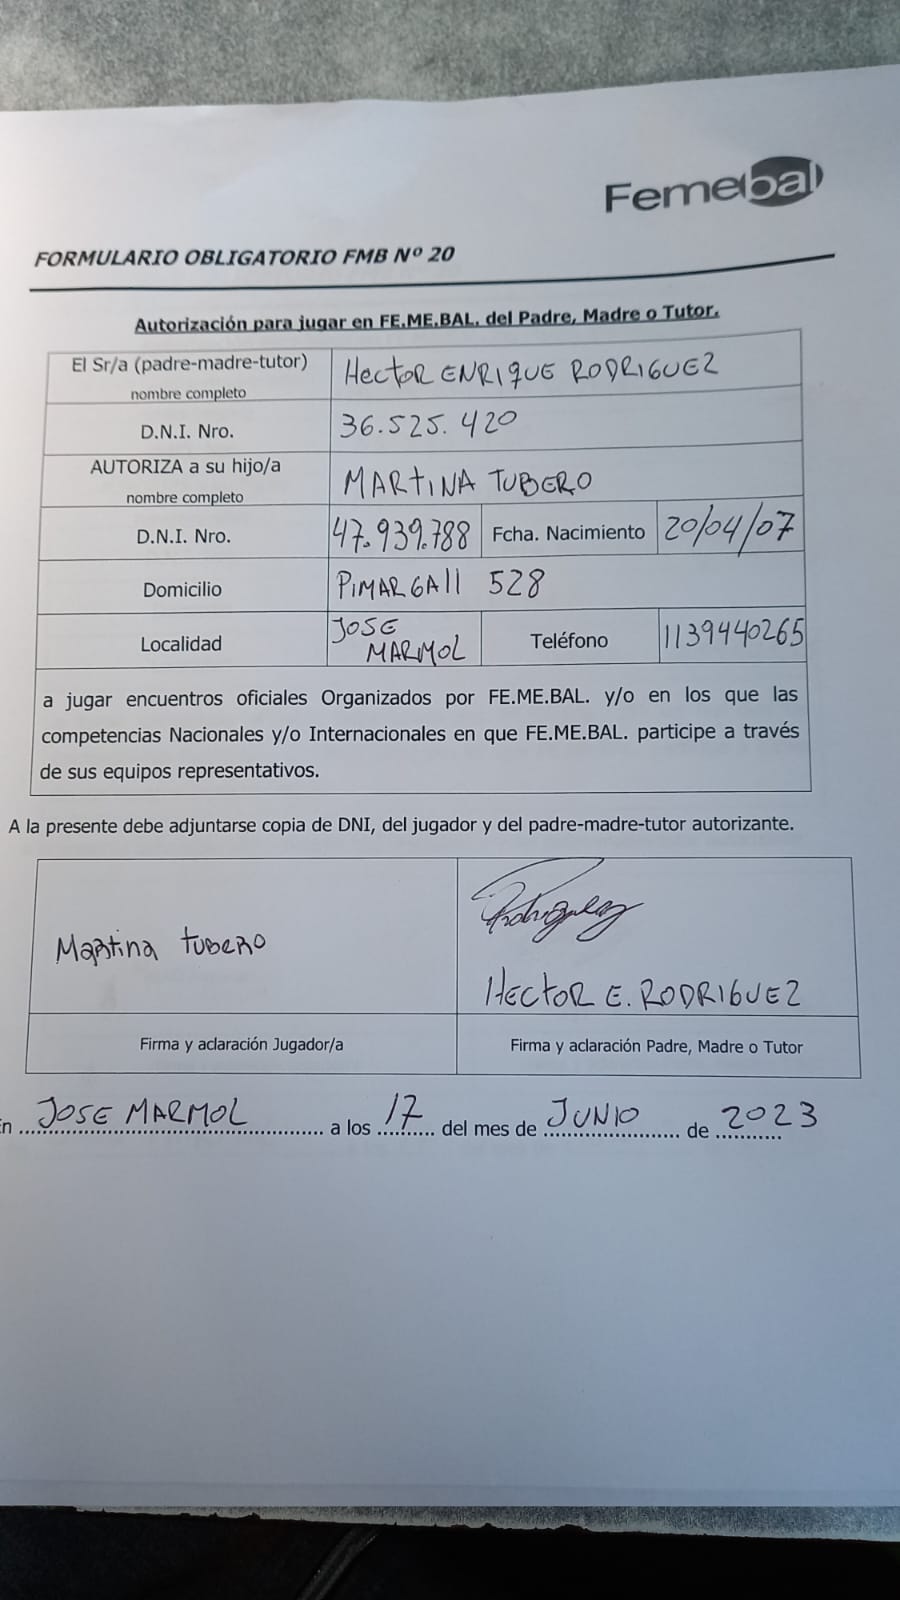 Femebal
FORMULARIO OBLIGATORIO FMB Nº 20
Autorización para jugar en FE.ME.BAL. del Padre, Madre o Tutor.
El Sr/a (padre-madre-tutor)
nombre completo
HECTOR ENRIQUE RODRIGUEZ
D.N.I. Nro.
36.525.420
AUTORIZA a su hijo/a
nombre completo
MARTINA TUBERO
D.N.I. Nro.
47.939.788
Fcha. Nacimiento
20/04/07
Domicilio
PIMARGAll 528
Localidad
JOSE
MARMOL
Teléfono
1139440265
a jugar encuentros oficiales Organizados por FE.ME.BAL. y/o en los que las
competencias Nacionales y/o Internacionales en que FE.ME.BAL. participe a través
de sus equipos representativos.
A la presente debe adjuntarse copia de DNI, del jugador y del padre-madre-tutor autorizante.
Martina tubero
Rodriguez
HECTOR E. RODRIGUEZ
Firma y aclaración Jugador/a
Firma y aclaración Padre, Madre o Tutor
En JOSE MARMOL a los 17 del mes de JUNIO de 2023